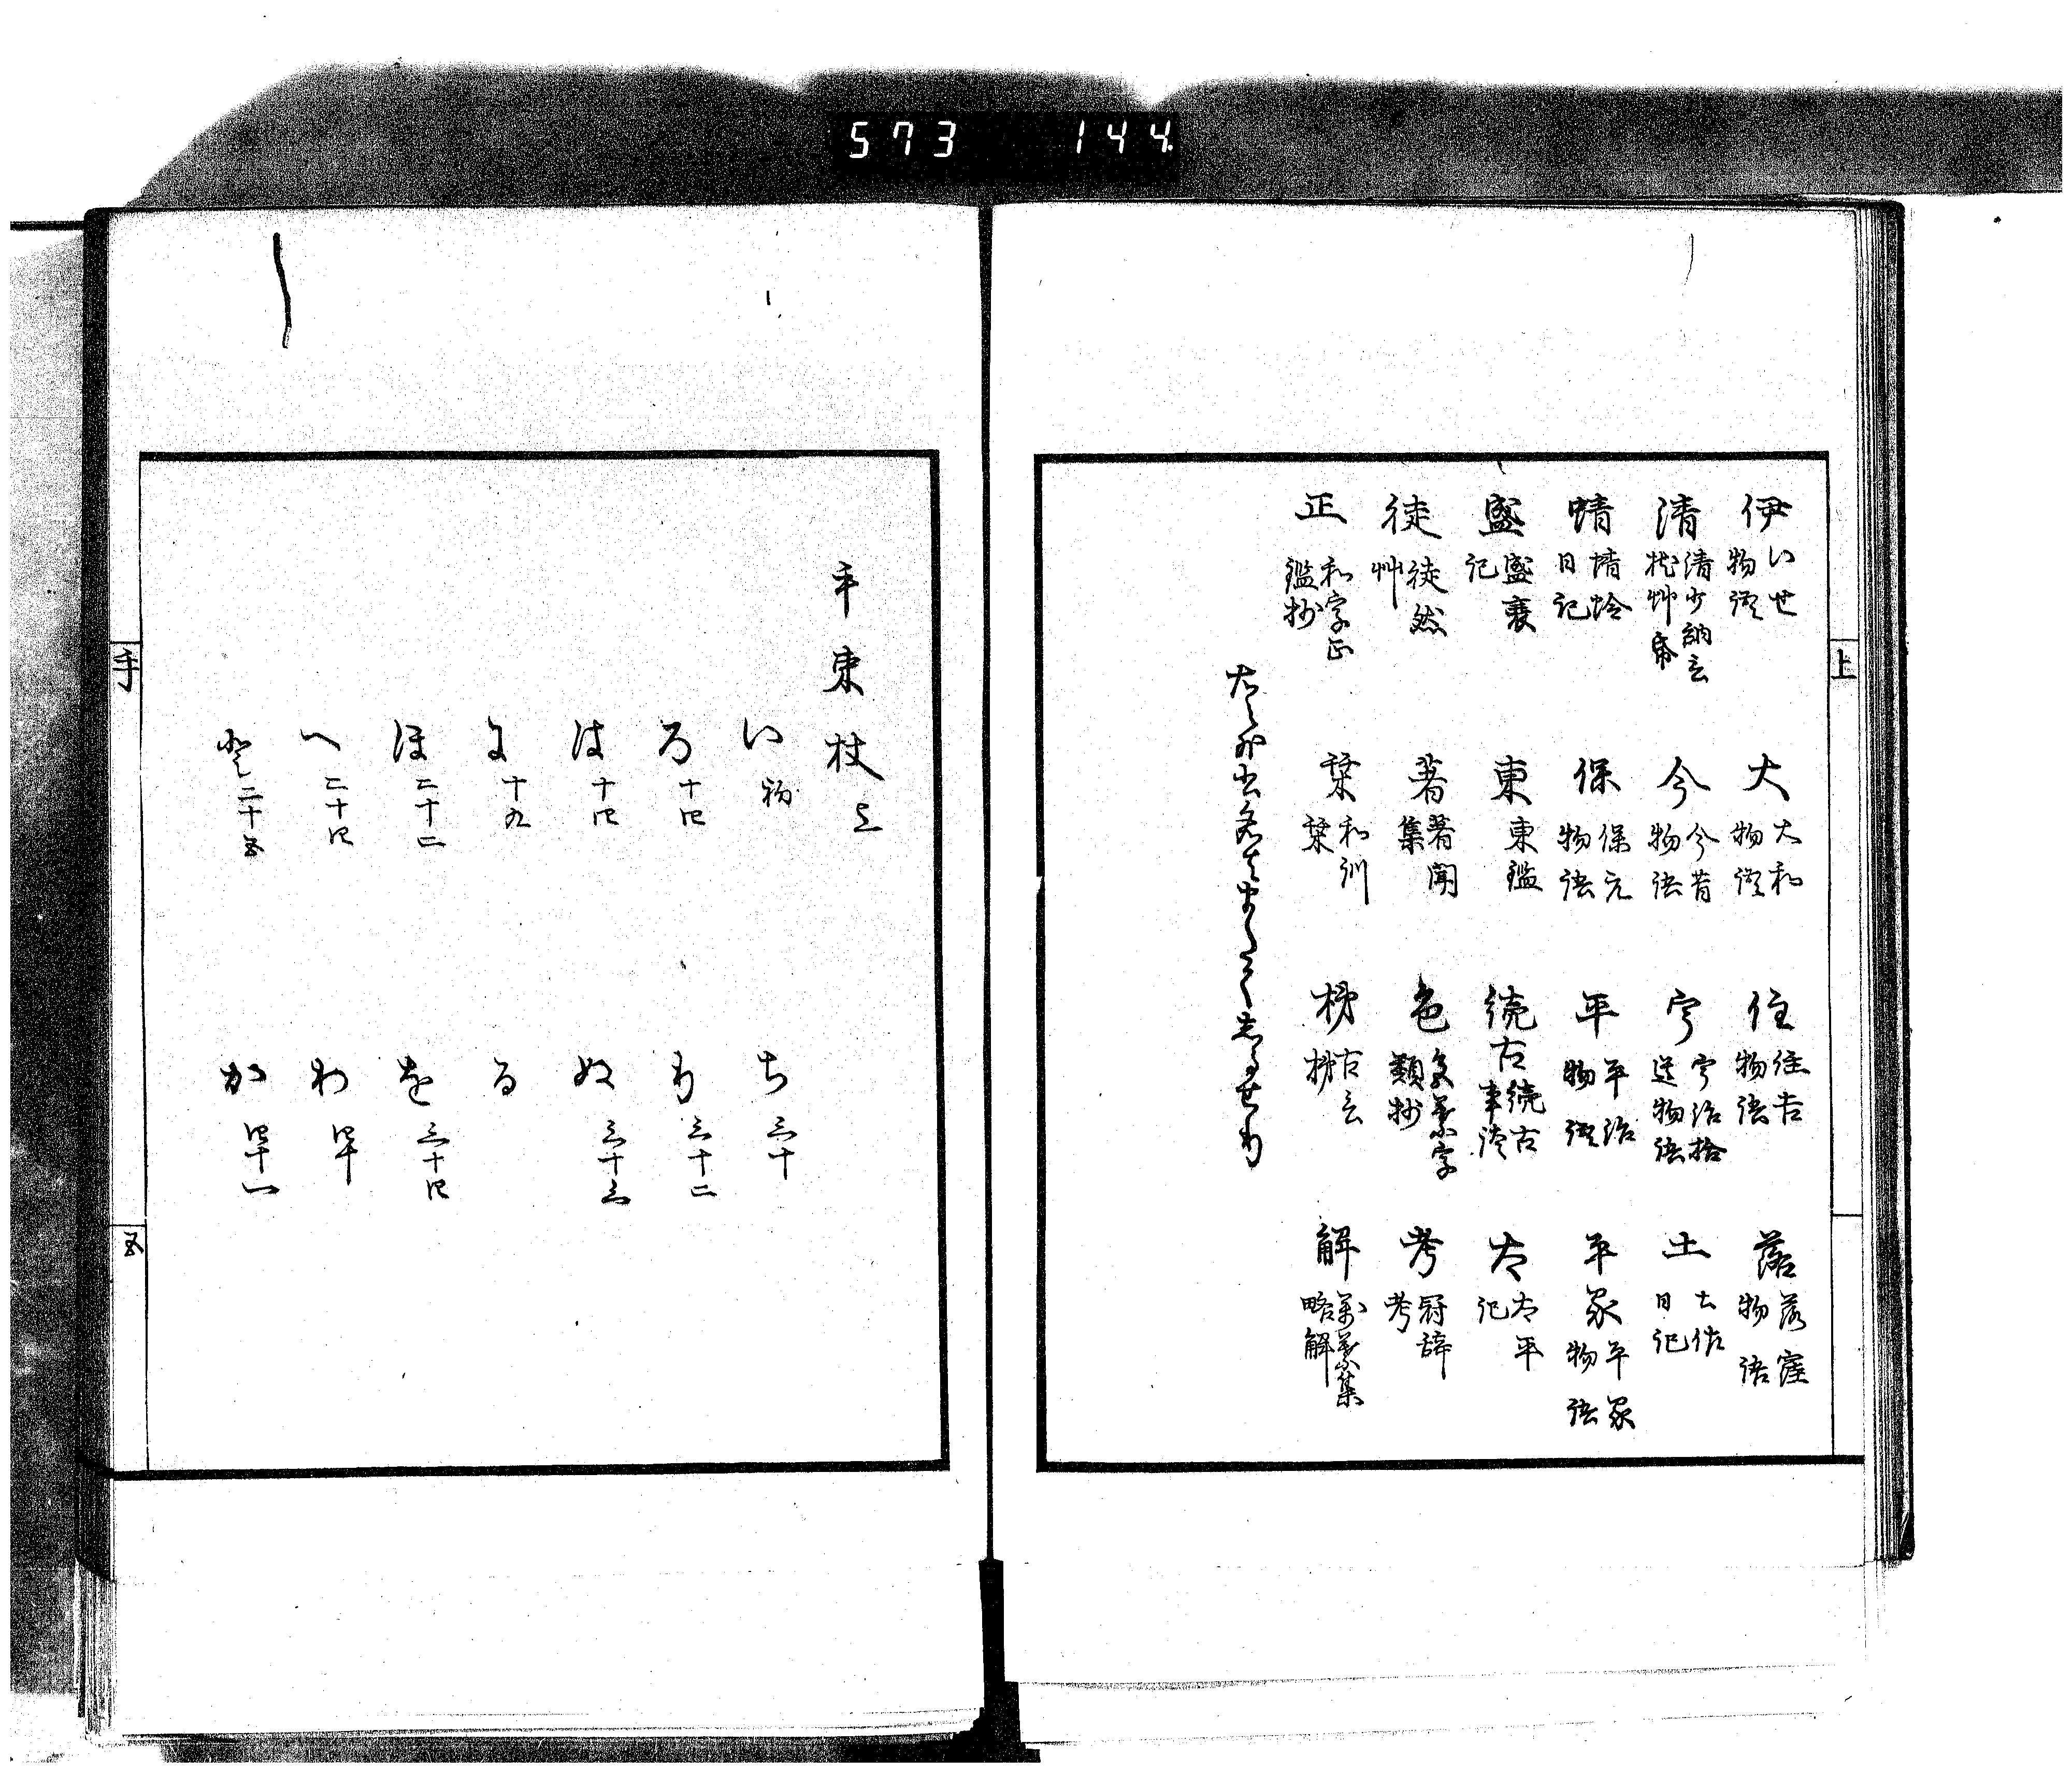 573 144
上
伊 いせ物語
大 大和物語
住 住吉物語
落 落窪物語
清 清少納言枕艸帋
今 今昔物語
宇 宇治拾遺物語
土 土佐日記
蜻 蜻蛉日記
保 保元物語
平 平治物語
平家 平家物語
盛 盛衰記
東 東鑑
続古 続古事談
太 太平記
徒 徒然艸
著 著聞集
色 色葉字類抄
考 冠辞考
正 和字正鑑抄
栞 和訓栞
梯 古言梯
解 万葉集略解
手束杖 上
い 初
ろ 十四
は 十四
に 十九
ほ 二十二
へ 二十四
と 二十五
ち 三十
り 三十二
ぬ 三十三
る
を 三十四
わ 四十
か 四十一
手
五